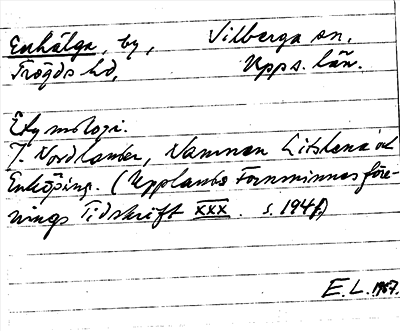 Enhälga, by, Vilberga sn,
Trögds hd, Upps. län.
Etymologi.
J. Nordlander, Namnen Litslena och
Enköping. (Upplands Fornminnesföre-
nings Tidskrift XXX. s. 194f)
E.L. 1967.